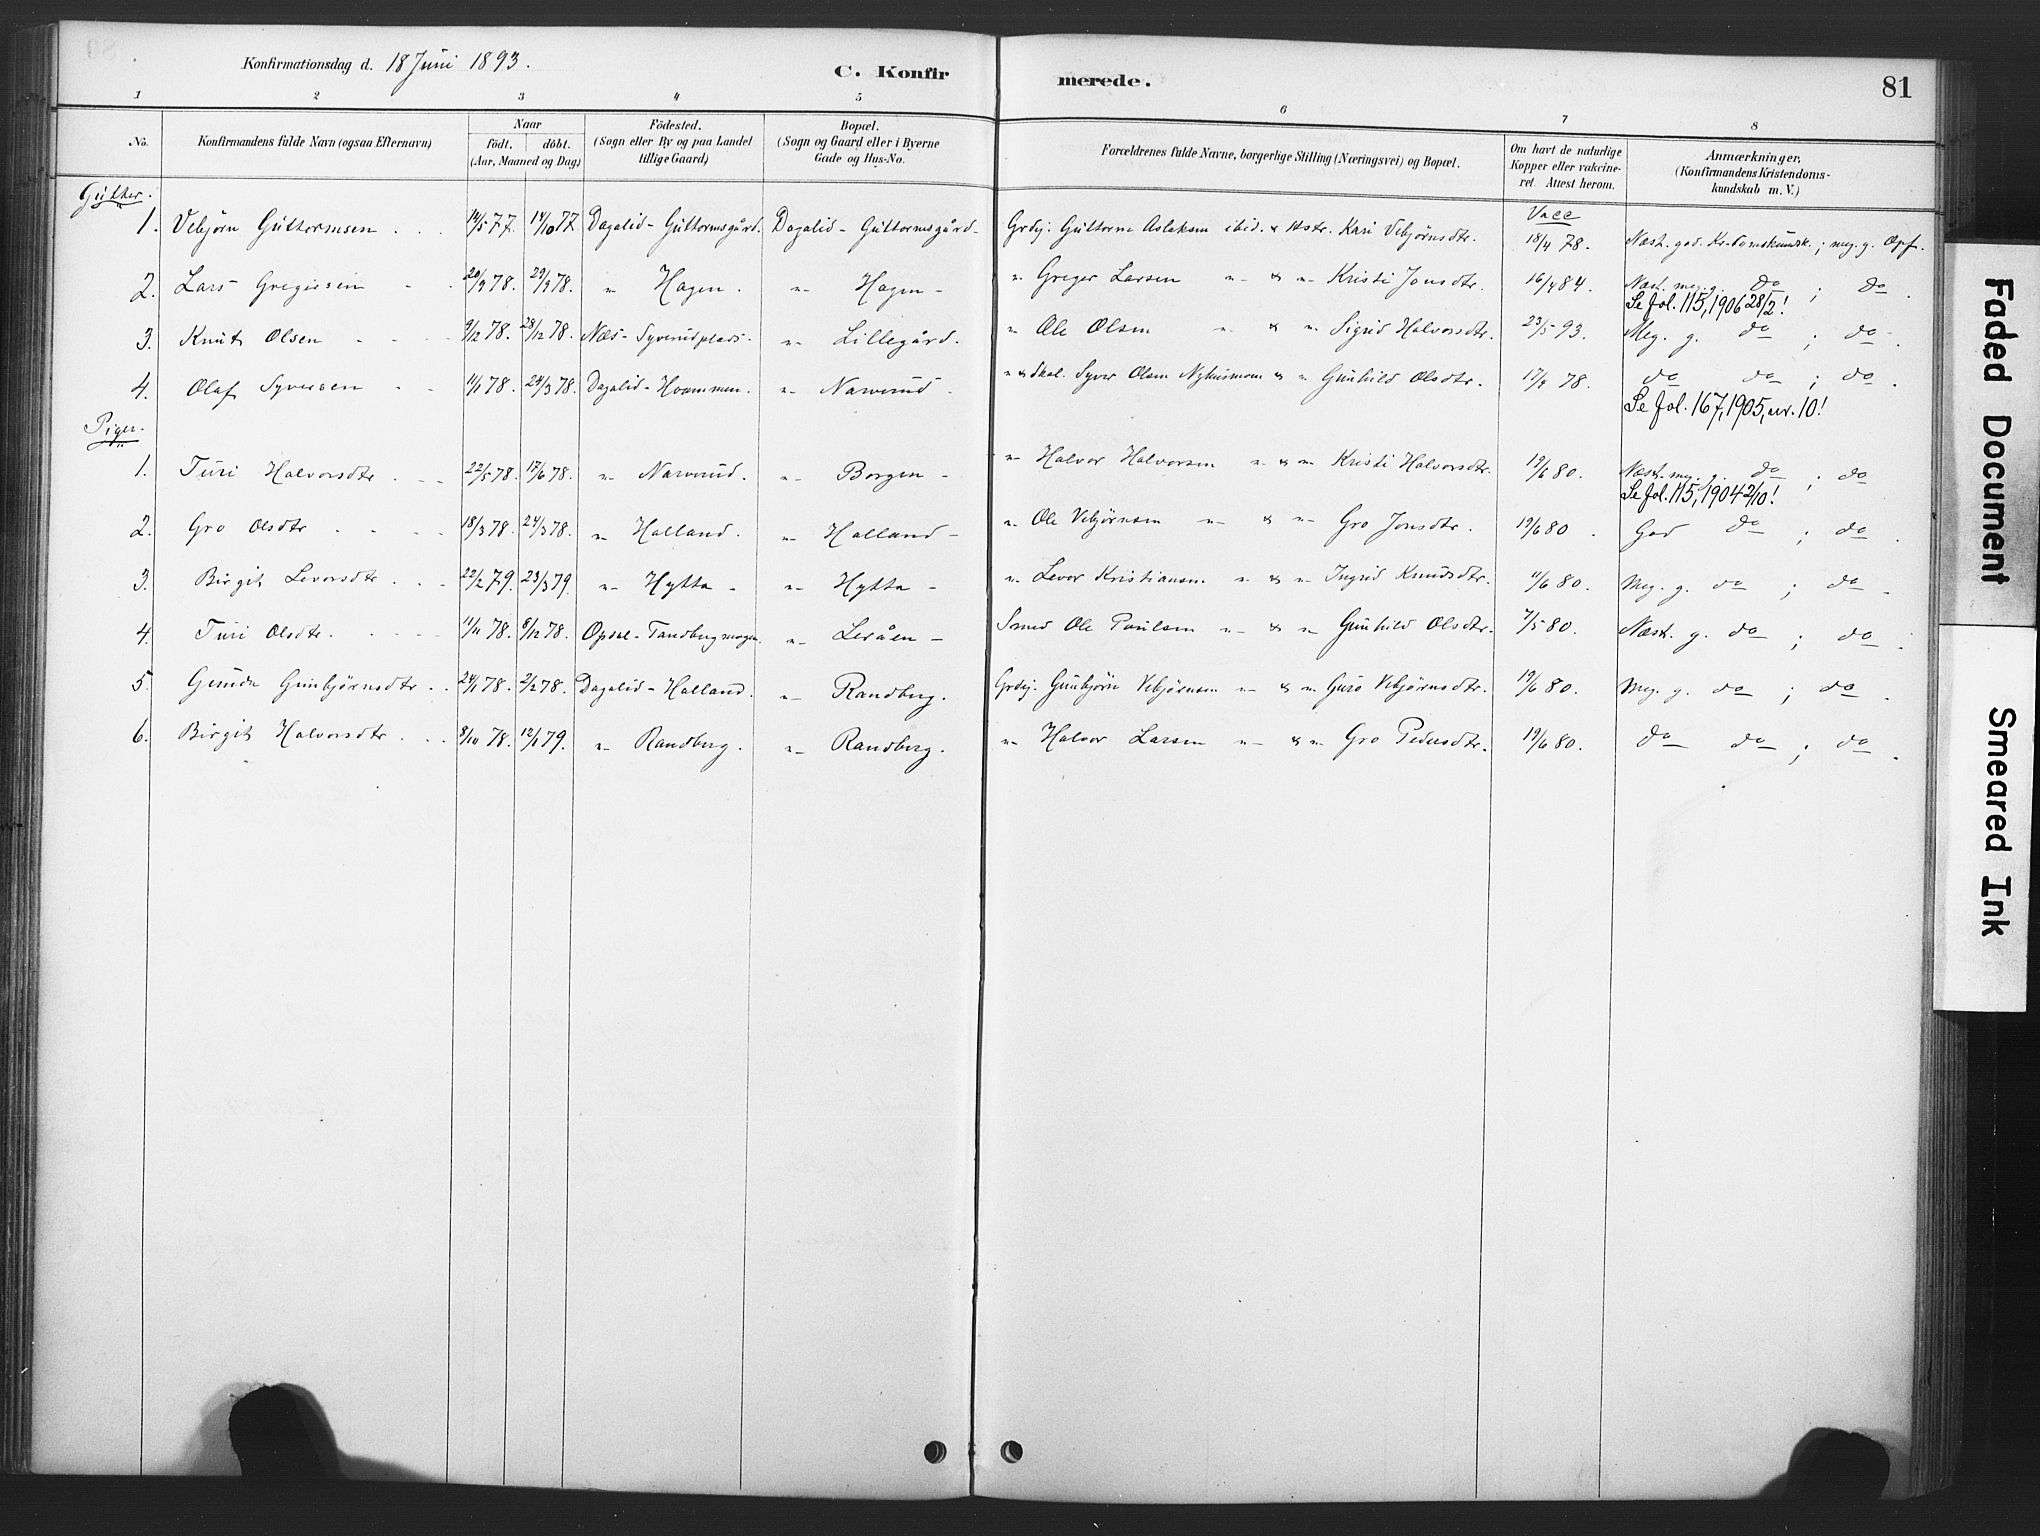 Konfirmationsdag d. 18 Juni 1893.
C. Konfirmerede.
81
1 2 3 4 5 6 7 8
No. Konfirmandens fulde Navn (ogsaa Efternavn) Naar födt. döbt. (Aar, Maaned og Dag) Födested. (Sogn eller By og paa Landet tillige Gaard) Bopæl. (Sogn og Gaard eller i Byerne Gade og Hus-No. Forældrenes fulde Navne, borgerlige Stilling (Næringsvei) og Bopæl. Om havt de naturlige Kopper eller vakcineret. Attest herom. Anmærkninger, (Konfirmandens Kristendomskundskab m. V.)
Gutter.
Vacc
1. Vebjörn Guttormsen 14/5 77. 14/10 77. Dagalid - Guttormsgård. Dagalid - Guttormsgård - Grdj. Guttorm Aslaksen ibid. & Hstr. Kari Vebjörnsdtr. 18/4 78. Næst. god. Kr-domskundsk.; meg. g. Opf.
2. Lars Gregersen 20/9 78. 29/9 78. " Hagen. " Hagen - " Greger Larsen " & " Kristi Jonsdtr. 16/4 84. Næst. meg. g. do ; do.
Se fol. 115, 1906 28/2!
3. Knut Olsen 9/12 78. 28/12 78. Næs - Syverudplads. " Lillegård. " Ole Olsen " & " Sigrid Halvorsdtr. 23/5 93. Meg. g. do ; do.
4. Olaf Syversen 11/1 78. 24/3 78. Dagalid - Hvammen. " Narverud. " & Skol. Syver Olsen Nyhusmoen & " Gunhild Olsdtr. 17/9 78. do do ; do.
Se fol. 167, 1905, nr. 10!
Piger.
1. Turi Halvorsdtr. 22/5 78. 17/6 78. " Narverud. " Borgen - " Halvor Halvorsen " & " Kristi Halvorsdtr. 19/6 80. Næst. meg. g. do ; do
Se fol. 115, 1904 2/10!
2. Gro Olsdtr 18/3 78. 24/3 78. " Halland. " Halland - " Ole Vebjörnsen " & " Gro Jonsdtr. 19/6 80. God do ; do.
3. Birgit Levorsdtr. 22/2 79. 23/3 79. " Hytta - " Hytta - " Levor Kristiansen " & " Ingrid Knudsdtr. 11/6 80. Meg. g. do ; do.
4. Turi Olsdtr. 11/11 78. 8/12 78. Opdal - Tandbergmogen. " Leråen - Smed Ole Paulsen " & " Gunhild Olsdtr. 7/5 80. Næst. g. do ; do.
5. Gunda Gunbjörnsdtr. 24/1 78. 2/2 78. Dagalid - Halland. " Randberg. Grdj. Gunbjörn Vebjörnsen " & " Guro Vebjörnsdtr. 19/6 80. Meg. g. do ; do.
6. Birgit Halvorsdtr. 8/11 78. 12/1 79. " Randberg. " Randberg. " Halvor Larsen " & " Gro Pedersdtr. 19/6 80. do do ; do.
Faded Document
Smeared Ink